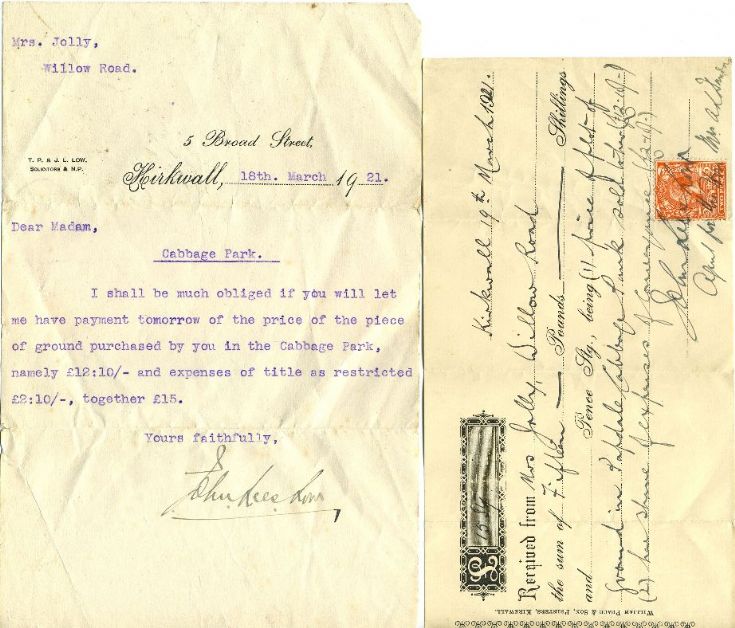 Mrs. Jolly,
Willow Road.
5 Broad Street,
T. P. & J. L. LOW,
SOLICITORS & N.P.
Kirkwall, 18th. March 1921.
Dear Madam,
Cabbage Park.
I shall be much obliged if you will let
me have payment tomorrow of the price of the piece
of ground purchased by you in the Cabbage Park,
namely £12:10/- and expenses of title as restricted
£2:10/-, together £15.
Yours faithfully,
John Lees Low
Kirkwall 19th March 1921.
£ 15
Received from Mrs Jolly, Willow Road
the sum of Fifteen Pounds Shillings
and Pence Stg., being (1) price of plot of
ground in Papdale Cabbage Park sold to her (£12.10/-)
(2) her share of expenses of conveyance (£2.10/-)
John Lees Low
WILLIAM PEACE & SON, PRINTERS, KIRKWALL.